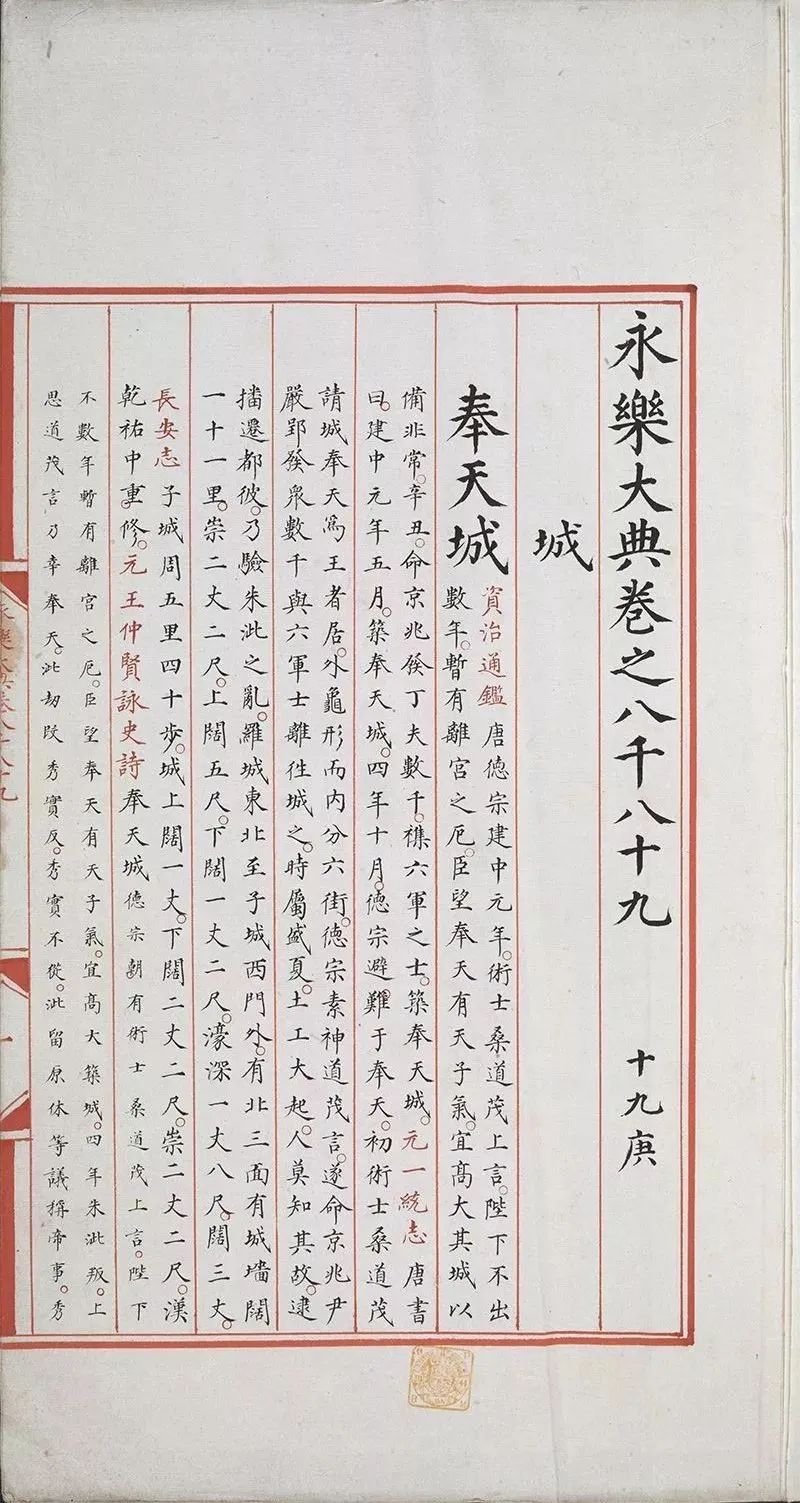 永樂大典卷之八千八十九 十九庚
城
奉天城 資治通鑑唐德宗建中元年。術士桑道茂上言。陛下不出
數年。暫有離宮之厄。臣望奉天有天子氣。宜髙大其城以
備非常。辛丑。命京兆發丁夫數千。襍六軍之士。築奉天城。元一統志唐書
曰。建中元年五月。築奉天城。四年十月。德宗避難于奉天。初術士桑道茂
請城奉天爲王者居。外龜形而内分六街。德宗素神道茂言。遂命京兆尹
嚴郢發衆數千與六軍士離徃城之。時屬盛夏。土工大起。人莫知其故。逮
播遷都彼。乃驗朱泚之亂。羅城東北至子城西門外。有北三面有城墻闊
一十一里。崇二丈二尺。上闊五尺。下闊一丈二尺。濠深一丈八尺。闊三丈。
長安志子城周五里四十步。城上闊一丈。下闊二丈二尺。崇二丈二尺。漢
乾祐中重修。元王仲賢詠史詩奉天城德宗朝有術士桑道茂上言。陛下
不數年暫有離宮之厄。臣望奉天有天子氣。宜髙大築城。四年朱泚叛。上
思道茂言乃幸奉天。泚劫段秀實反。秀實不從。泚留原休等議稱帝事。秀